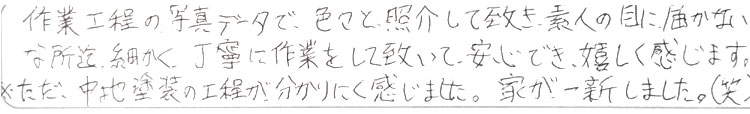 作業工程の写真データで、色々と照介して致き、素人の目に届かない
な所迄、細かく、丁寧に作業をして致いて、安心でき、嬉しく感じます。
※ただ、中地塗装の工程が分かりにくく感じました。家が一新しました。(笑)